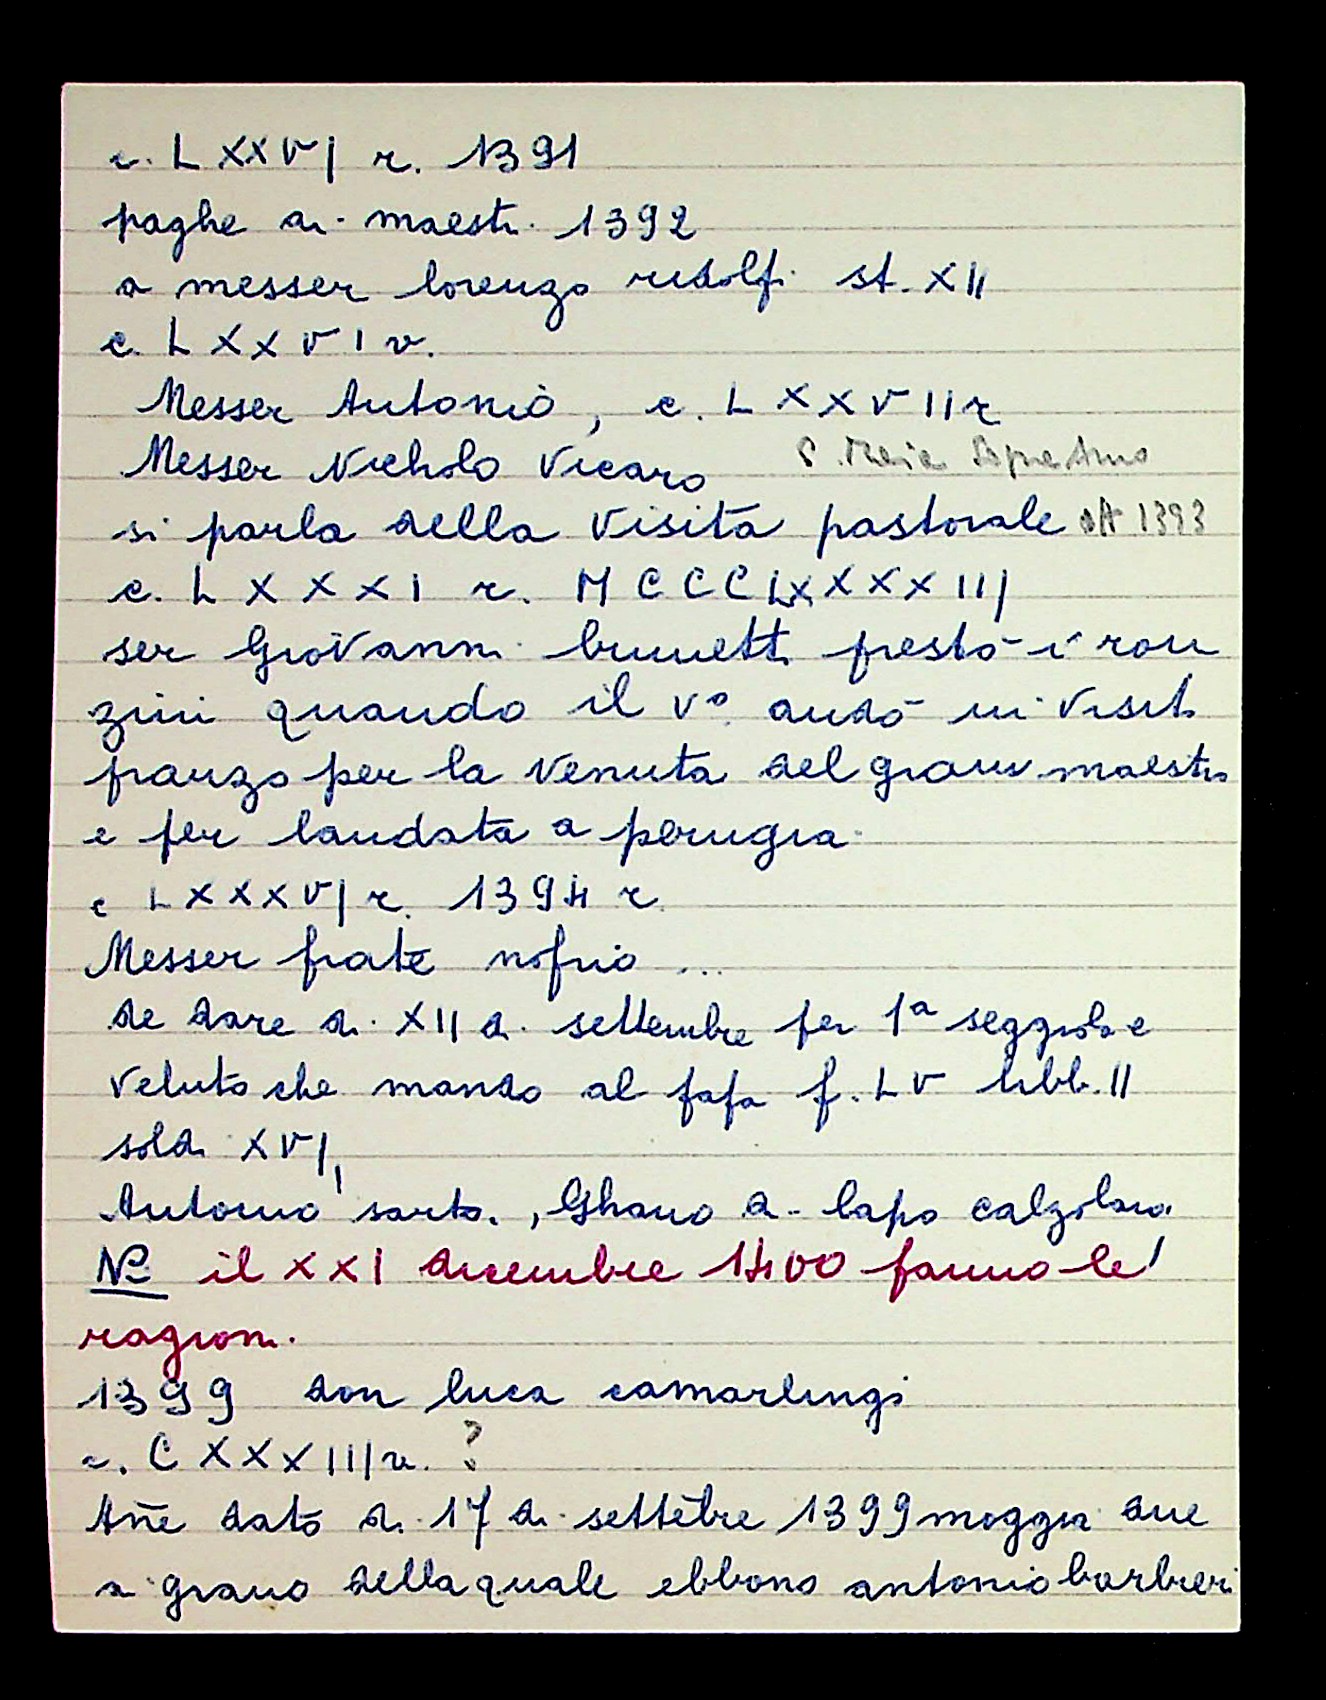 c. LXXVJ r. 1391
paghe di maestri 1392
a messer lorenzo ridolfi st. XII
c. LXXVI v.
Messer Antonio, c. LXXVII r
Messer Nicholo Vicaro S. Maria
si parla della Visita pastorale 1393
c. LXXXI r. MCCCLXXXXIIJ
ser Giovanni brunetti prestò i ron
zini quando il vº andò in Visit.
pranzo per la venuta del gran maestro
e per landata a perugia
c LXXXVJ r. 1394 r.
Messer frate nofrio ...
de dare di XII di settembre per 1ª seggiola e
veluto che mando al papa f. LV libb. II
soldi XVJ,
Antonio sarto, Ghano di lapo calzolaio
Nº il XXI dicembre 1400 fanno le
ragioni.
1399 don luca camarlingi
c. CXXXIIJ v. ?
Añe dato di 17 di settēbre 1399 moggia due
di grano della quale ebbono antonio barbieri